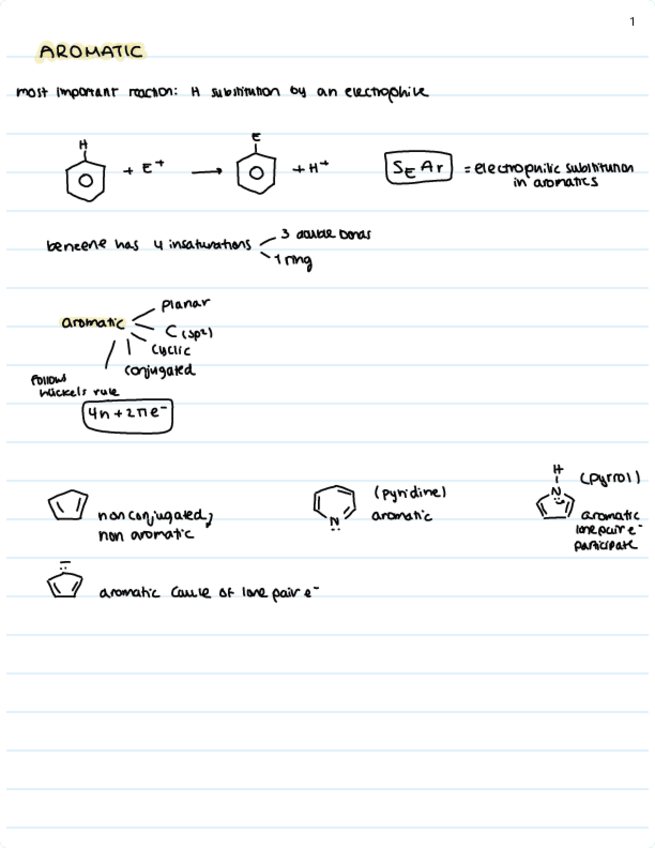 1
AROMATIC
most important reaction: H substitution by an electrophile
H
E
+ E+ → + H+
SE Ar = electrophilic substitution
in aromatics
benzene has 4 insaturations
3 double bonds
1 ring
aromatic
planar
C (sp2)
cyclic
conjugated
follows
hückels rule
4n+2πe-
non conjugated,
non aromatic
N
(pyridine)
aromatic
H
N
(pyrrol)
aromatic
lone pair e-
participate
aromatic cause of lone pair e-